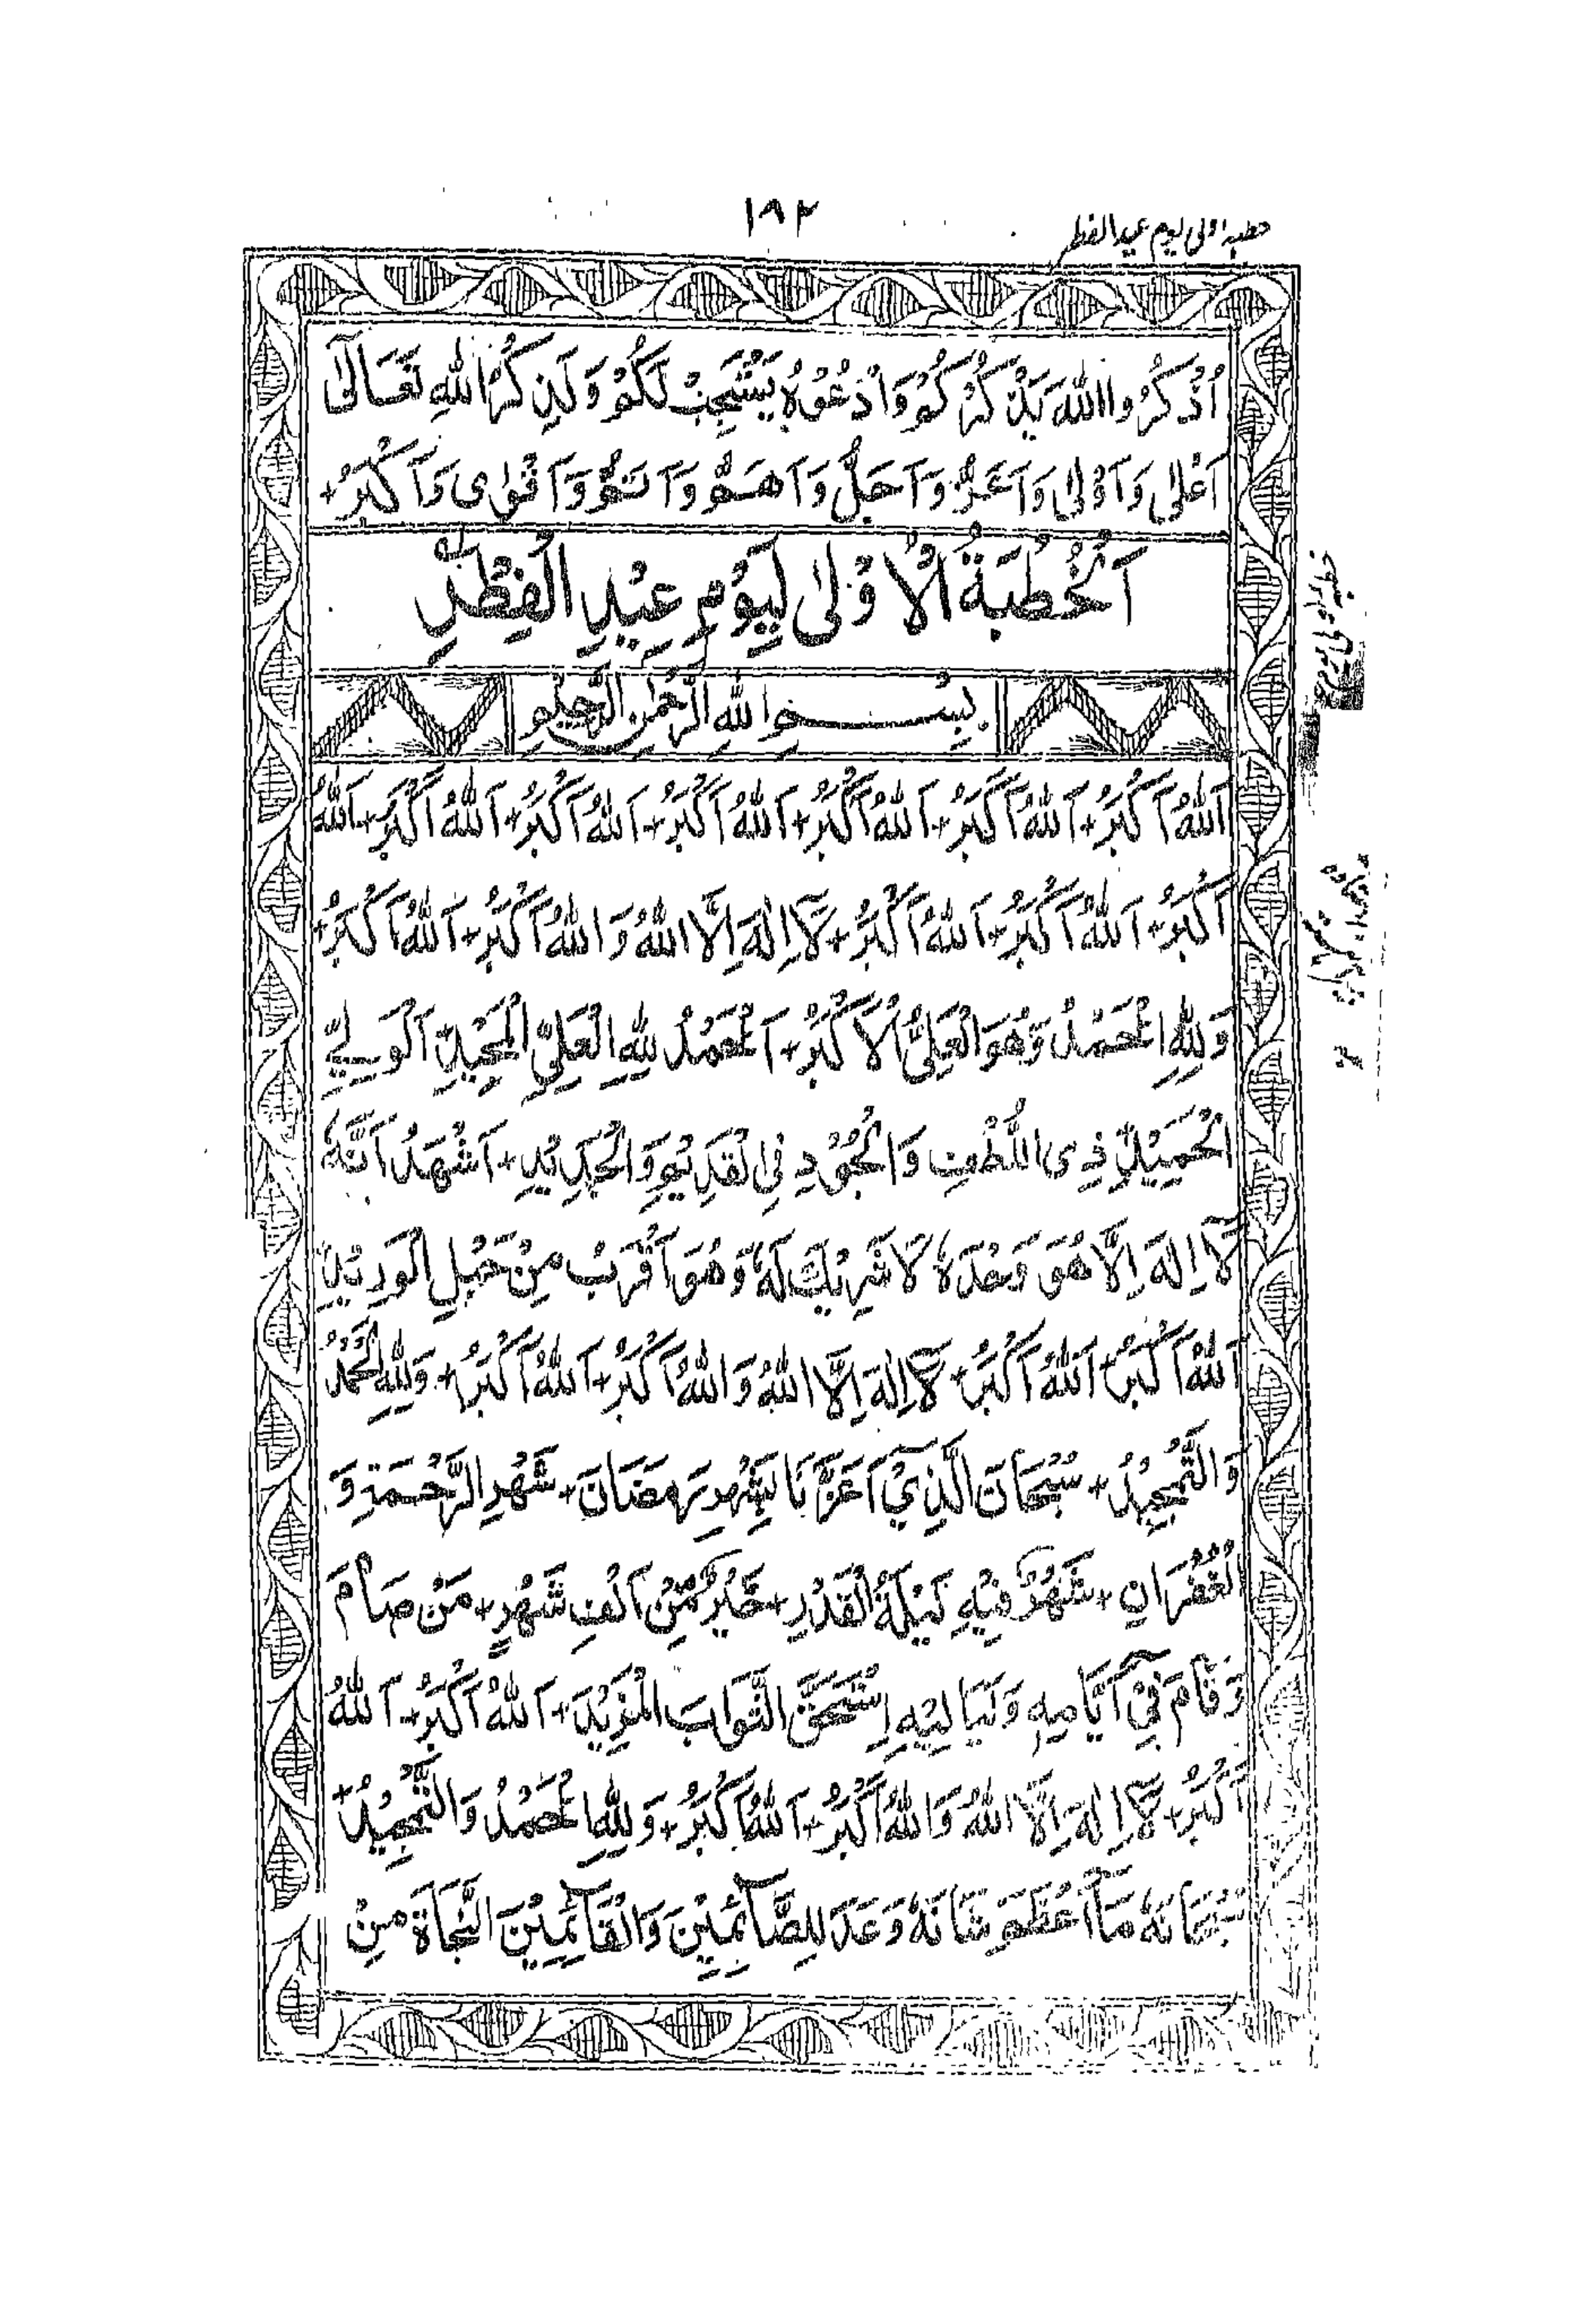 ١٩٢
خطبه اولی یوم عید الفطر
اُذْكُرُوا اللهَ يَذْكُرْكُمْ وَادْعُوْهُ يَسْتَجِبْ لَكُمْ وَلَذِكْرُ اللهِ تَعَالٰى
اَعْلٰى وَاَوْلٰى وَاَعَزُّ وَاَجَلُّ وَاَهَمُّ وَاَتَمُّ وَاَقْوٰى وَاَكْبَرُ +
اَلْخُطْبَةُ الْاُوْلٰى لِيَوْمِ عِيْدِ الْفِطْرِ
بِسْمِ اللهِ الرَّحْمٰنِ الرَّحِيْمِ
اَللهُ اَكْبَرُ + اَللهُ اَكْبَرُ + اَللهُ اَكْبَرُ + اَللهُ اَكْبَرُ + اَللهُ اَكْبَرُ + اَللهُ اَكْبَرُ + اَللهُ
اَكْبَرُ + اَللهُ اَكْبَرُ + اَللهُ اَكْبَرُ + لَآ اِلٰهَ اِلَّا اللهُ وَاللهُ اَكْبَرُ + اَللهُ اَكْبَرُ +
وَلِلّٰهِ الْحَمْدُ وَهُوَ الْعَلِيُّ الْاَكْبَرُ + اَلْحَمْدُ لِلّٰهِ الْعَلِيِّ الْمَجِيْدِ الْوَلِيِّ
الْحَمِيْدِ ذِى اللُّطْفِ وَالْجُوْدِ فِى الْقَدِيْمِ وَالْجَدِيْدِ + اَشْهَدُ اَنَّهٗ
لَآ اِلٰهَ اِلَّا هُوَ وَحْدَهٗ لَا شَرِيْكَ لَهٗ وَهُوَ اَقْرَبُ مِنْ حَبْلِ الْوَرِيْدِ
اَللهُ اَكْبَرُ + اَللهُ اَكْبَرُ + لَآ اِلٰهَ اِلَّا اللهُ وَاللهُ اَكْبَرُ + اَللهُ اَكْبَرُ + وَلِلّٰهِ الْحَمْدُ
وَالتَّمْجِيْدُ + سُبْحَانَ الَّذِيْ اَعَزَّنَا بِشَهْرِ رَمَضَانَ + شَهْرِ الرَّحْمَةِ وَ
الْغُفْرَانِ + شَهْرٌ فِيْهِ لَيْلَةُ الْقَدْرِ + خَيْرٌ مِّنْ اَلْفِ شَهْرٍ + مَنْ صَامَ
وَقَامَ فِيْ اَيَّامِهٖ وَلَيَالِيْهِ اِسْتَحَقَّ الثَّوَابَ الْمَزِيْدَ + اَللهُ اَكْبَرُ + اَللهُ
اَكْبَرُ + لَآ اِلٰهَ اِلَّا اللهُ وَاللهُ اَكْبَرُ + اَللهُ اَكْبَرُ + وَلِلّٰهِ الْحَمْدُ وَالتَّمْجِيْدُ +
سُبْحَانَهٗ مَا اَعْظَمَ شَانَهٗ وَعَدَ لِلصَّآئِمِيْنَ وَالْقَآئِمِيْنَ النَّجَاةَ مِنْ